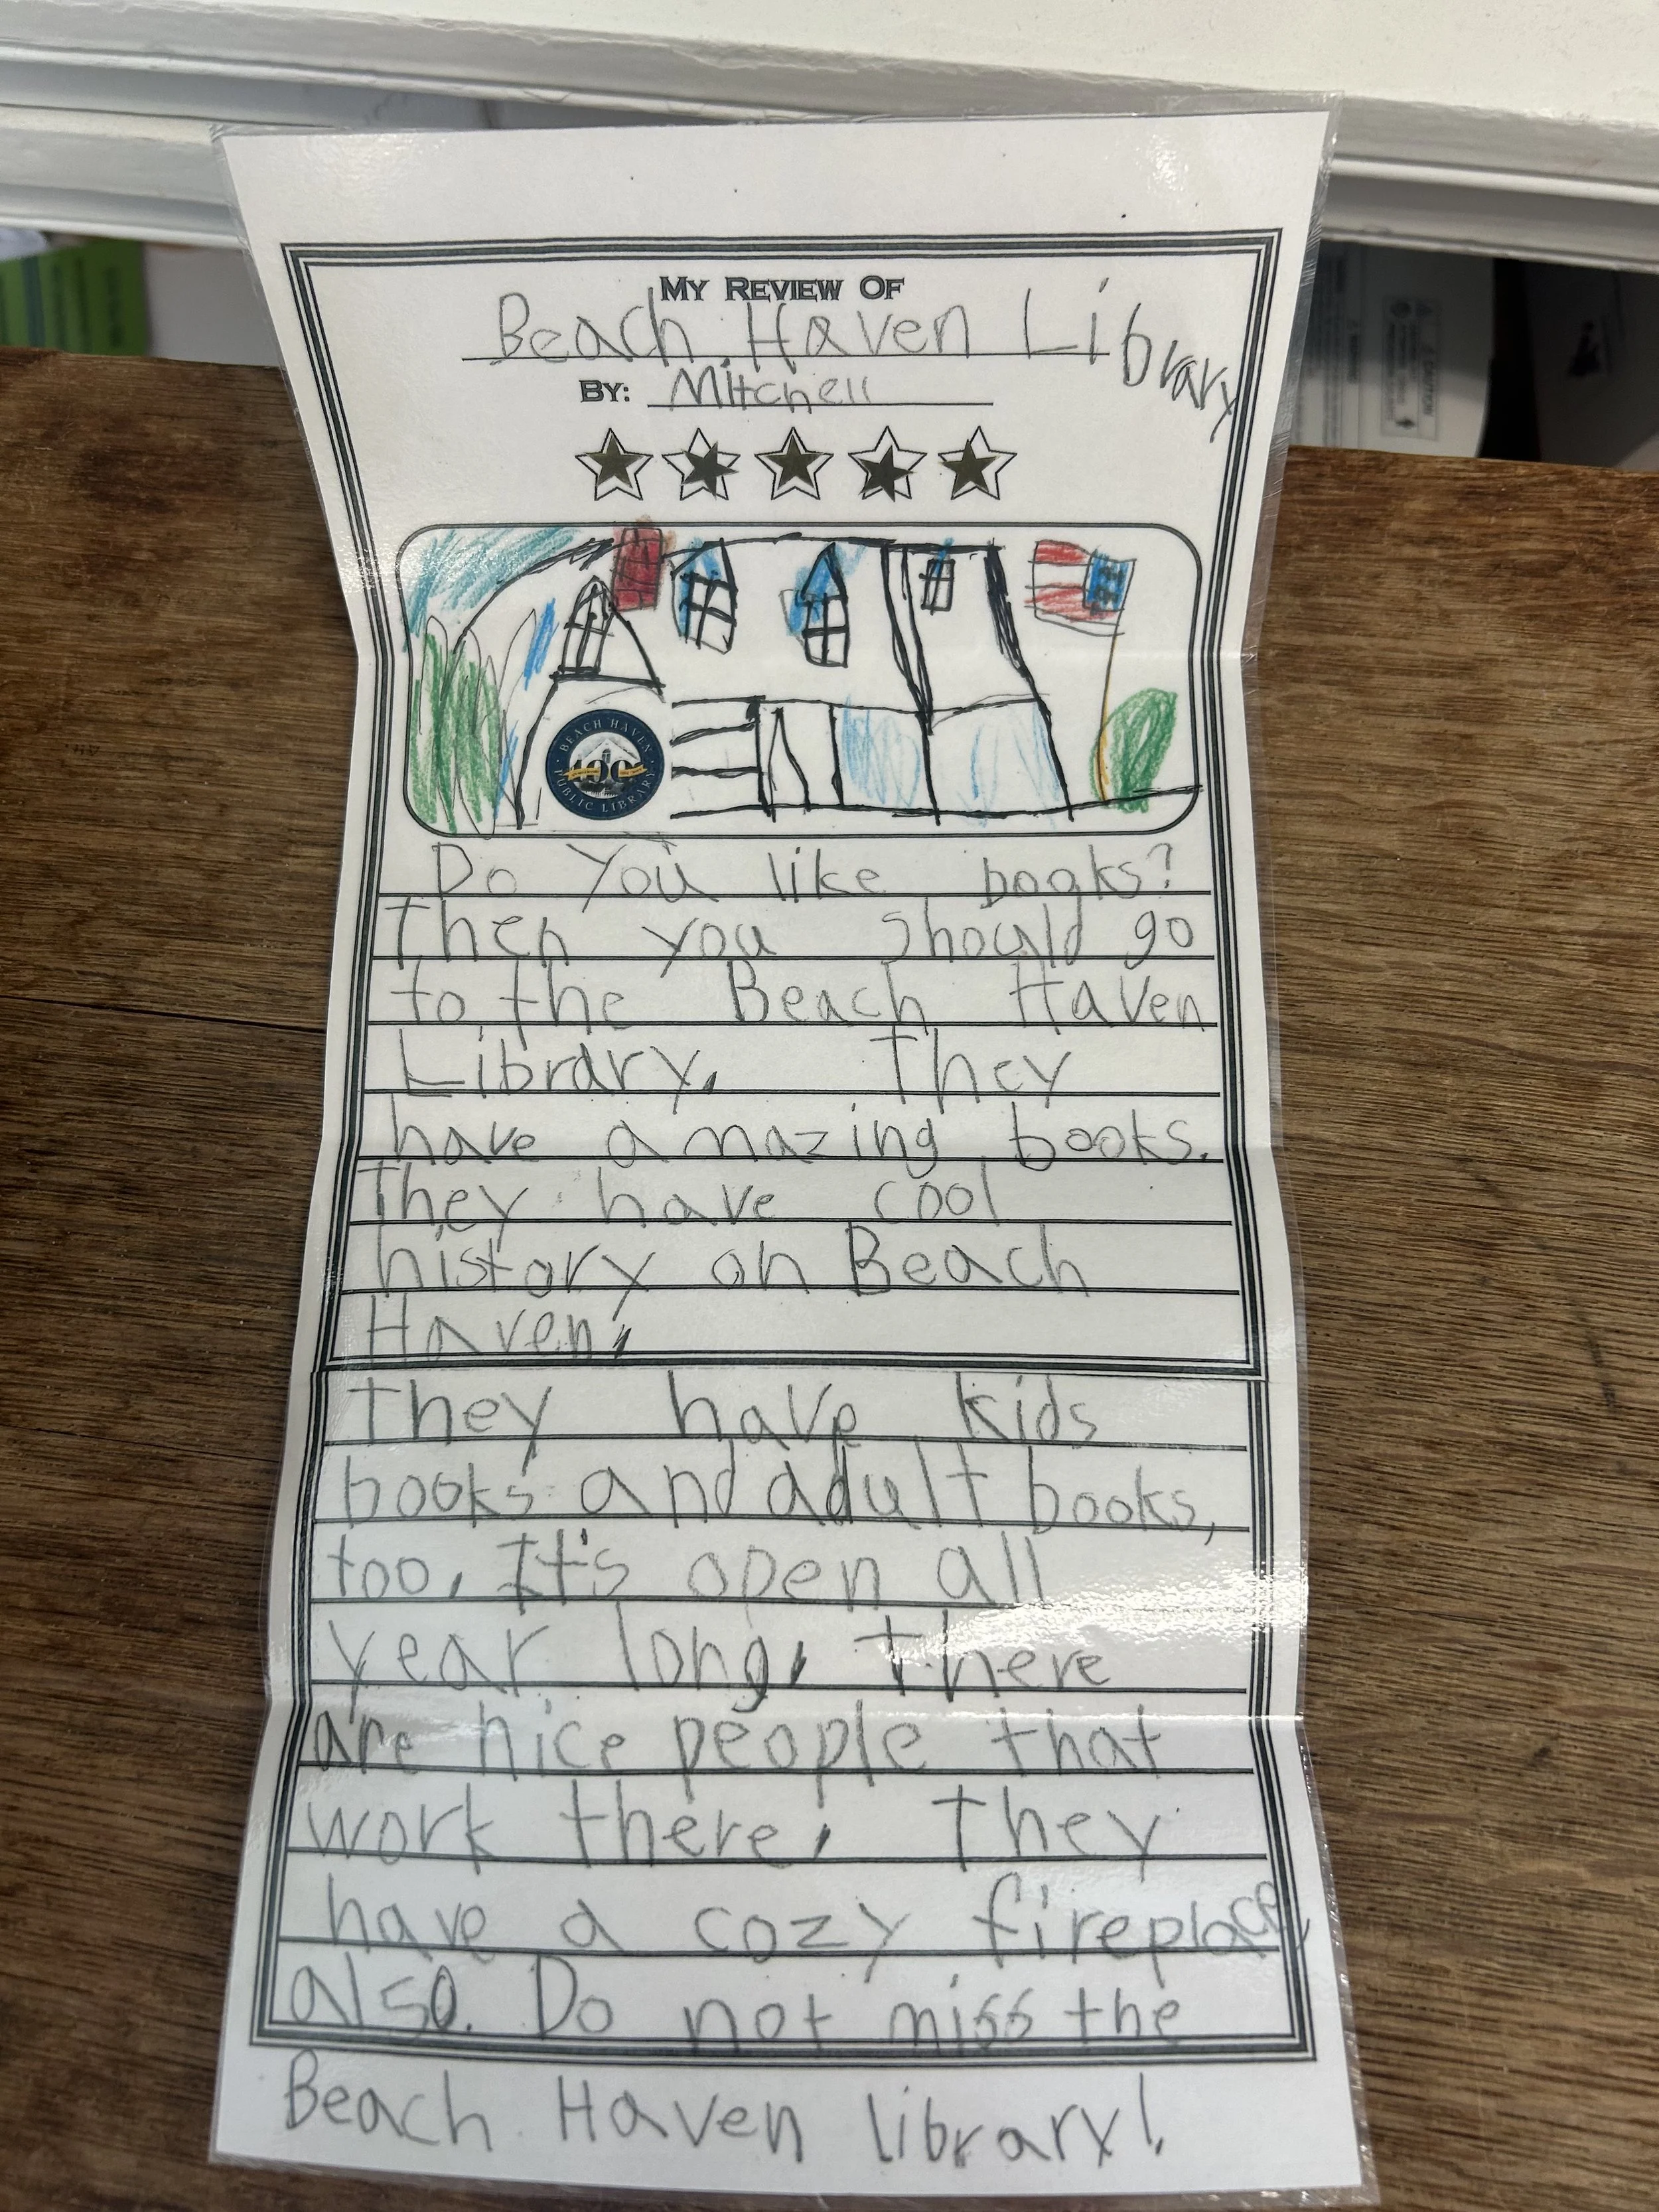 MY REVIEW OF
Beach Haven Library
BY: Mitchell
BEACH HAVEN
100
PUBLIC LIBRARY
Do You like books?
Then you should go
to the Beach Haven
Library. They
have amazing books.
They have cool
history on Beach
Haven.
They have kids
books and adult books,
too. It's open all
year long. There
are nice people that
work there. They
have a cozy fireplace,
also. Do not miss the
Beach Haven library!